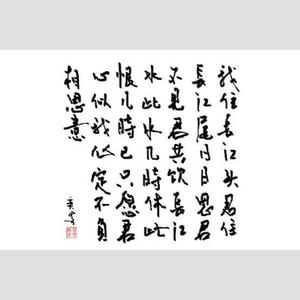 我住長江头君住
長江尾日日思君
不見君共饮長江
水此水几時休此
恨几時已只愿君
心似我心定不負
相思意